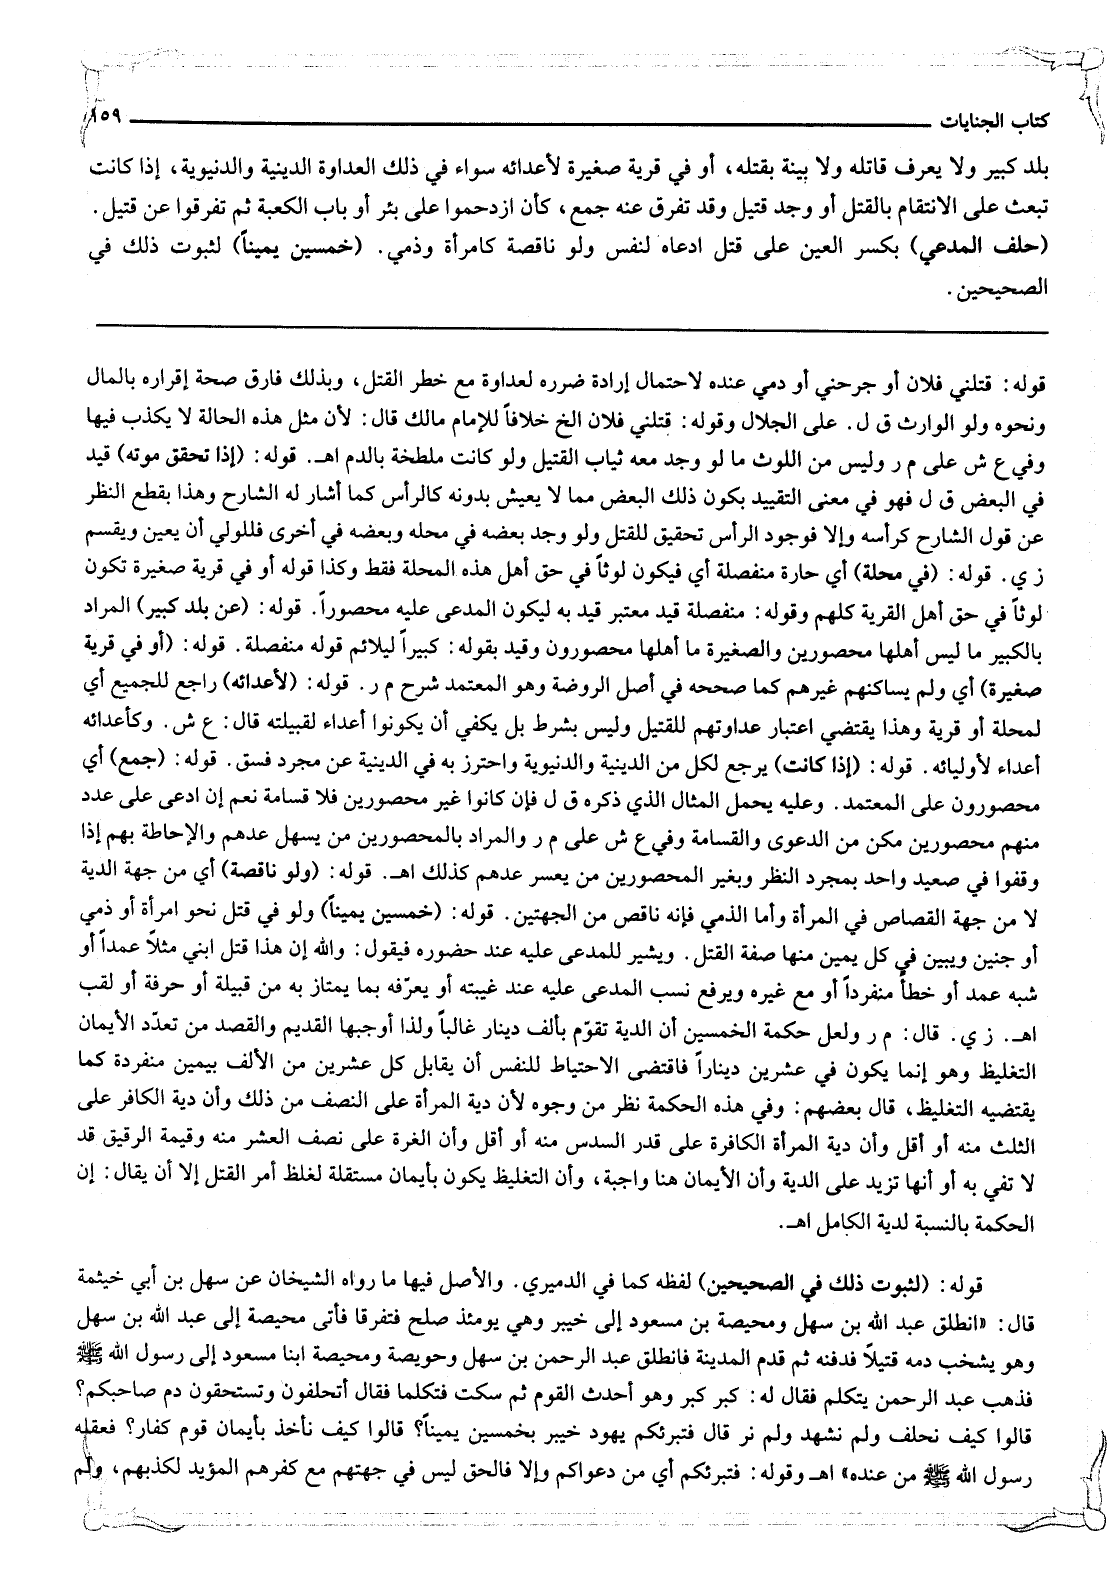 كتاب الجنايات ١٥٩
بلد كبير ولا يعرف قاتله ولا بينة بقتله، أو في قرية صغيرة لأعدائه سواء في ذلك العداوة الدينية والدنيوية، إذا كانت
تبعث على الانتقام بالقتل أو وجد قتيل وقد تفرق عنه جمع، كأن ازدحموا على بئر أو باب الكعبة ثم تفرقوا عن قتيل.
(حلف المدعي) بكسر العين على قتل ادعاه لنفس ولو ناقصة كامرأة وذمي. (خمسين يميناً) لثبوت ذلك في
الصحيحين.
قوله: قتلني فلان أو جرحني أو دمي عنده لاحتمال إرادة ضرره لعداوة مع خطر القتل، وبذلك فارق صحة إقراره بالمال
ونحوه ولو الوارث ق ل. على الجلال وقوله: قتلني فلان الخ خلافاً للإمام مالك قال: لأن مثل هذه الحالة لا يكذب فيها
وفي ع ش على م ر وليس من اللوث ما لو وجد معه ثياب القتيل ولو كانت ملطخة بالدم اهـ. قوله: (إذا تحقق موته) قيد
في البعض ق ل فهو في معنى التقييد بكون ذلك البعض مما لا يعيش بدونه كالرأس كما أشار له الشارح وهذا بقطع النظر
عن قول الشارح كرأسه وإلا فوجود الرأس تحقيق للقتل ولو وجد بعضه في محله وبعضه في أخرى فللولي أن يعين ويقسم
ز ي. قوله: (في محلة) أي حارة منفصلة أي فيكون لوثاً في حق أهل هذه المحلة فقط وكذا قوله أو في قرية صغيرة تكون
لوثاً في حق أهل القرية كلهم وقوله: منفصلة قيد معتبر قيد به ليكون المدعى عليه محصوراً. قوله: (عن بلد كبير) المراد
بالكبير ما ليس أهلها محصورين والصغيرة ما أهلها محصورون وقيد بقوله: كبيراً ليلائم قوله منفصلة. قوله: (أو في قرية
صغيرة) أي ولم يساكنهم غيرهم كما صححه في أصل الروضة وهو المعتمد شرح م ر. قوله: (لأعدائه) راجع للجميع أي
لمحلة أو قرية وهذا يقتضي اعتبار عداوتهم للقتيل وليس بشرط بل يكفي أن يكونوا أعداء لقبيلته قال: ع ش. وكأعدائه
أعداء لأوليائه. قوله: (إذا كانت) يرجع لكل من الدينية والدنيوية واحترز به في الدينية عن مجرد فسق. قوله: (جمع) أي
محصورون على المعتمد. وعليه يحمل المثال الذي ذكره ق ل فإن كانوا غير محصورين فلا قسامة نعم إن ادعى على عدد
منهم محصورين مكن من الدعوى والقسامة وفي ع ش على م ر والمراد بالمحصورين من يسهل عدهم والإحاطة بهم إذا
وقفوا في صعيد واحد بمجرد النظر وبغير المحصورين من يعسر عدهم كذلك اهـ. قوله: (ولو ناقصة) أي من جهة الدية
لا من جهة القصاص في المرأة وأما الذمي فإنه ناقص من الجهتين. قوله: (خمسين يميناً) ولو في قتل نحو امرأة أو ذمي
أو جنين ويبين في كل يمين منها صفة القتل. ويشير للمدعى عليه عند حضوره فيقول: والله إن هذا قتل ابني مثلاً عمداً أو
شبه عمد أو خطأ منفرداً أو مع غيره ويرفع نسب المدعى عليه عند غيبته أو يعرّفه بما يمتاز به من قبيلة أو حرفة أو لقب
اهـ. ز ي. قال: م ر ولعل حكمة الخمسين أن الدية تقوّم بألف دينار غالباً ولذا أوجبها القديم والقصد من تعدّد الأيمان
التغليظ وهو إنما يكون في عشرين ديناراً فاقتضى الاحتياط للنفس أن يقابل كل عشرين من الألف بيمين منفردة كما
يقتضيه التغليظ، قال بعضهم: وفي هذه الحكمة نظر من وجوه لأن دية المرأة على النصف من ذلك وأن دية الكافر على
الثلث منه أو أقل وأن دية المرأة الكافرة على قدر السدس منه أو أقل وأن الغرة على نصف العشر منه وقيمة الرقيق قد
لا تفي به أو أنها تزيد على الدية وأن الأيمان هنا واجبة، وأن التغليظ يكون بأيمان مستقلة لغلظ أمر القتل إلا أن يقال: إن
الحكمة بالنسبة لدية الكامل اهـ.
قوله: (لثبوت ذلك في الصحيحين) لفظه كما في الدميري. والأصل فيها ما رواه الشيخان عن سهل بن أبي خيثمة
قال: «انطلق عبد الله بن سهل ومحيصة بن مسعود إلى خيبر وهي يومئذ صلح فتفرقا فأتى محيصة إلى عبد الله بن سهل
وهو يشخب دمه قتيلاً فدفنه ثم قدم المدينة فانطلق عبد الرحمن بن سهل وحويصة ومحيصة ابنا مسعود إلى رسول الله ﷺ
فذهب عبد الرحمن يتكلم فقال له: كبر كبر وهو أحدث القوم ثم سكت فتكلما فقال أتحلفون وتستحقون دم صاحبكم؟
قالوا كيف نحلف ولم نشهد ولم نر قال فتبرئكم يهود خيبر بخمسين يميناً؟ قالوا كيف نأخذ بأيمان قوم كفار؟ فعقله
رسول الله ﷺ من عنده» اهـ وقوله: فتبرئكم أي من دعواكم وإلا فالحق ليس في جهتهم مع كفرهم المؤيد لكذبهم، ولم